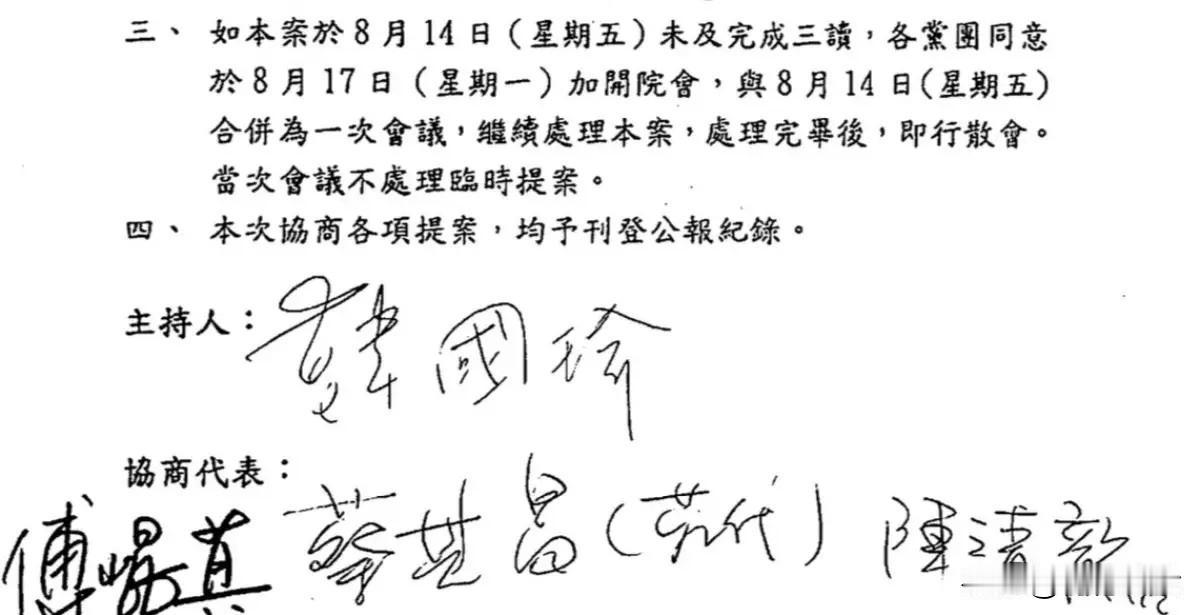 三、如本案於8月14日（星期五）未及完成三讀，各黨團同意
於8月17日（星期一）加開院會，與8月14日(星期五)
合併為一次會議，繼續處理本案，處理完畢後，即行散會。
當次會議不處理臨時提案。
四、本次協商各項提案，均予刊登公報紀錄。
主持人：韓國瑜
協商代表：
傅崐萁 蔡其昌(代) 陳清龍